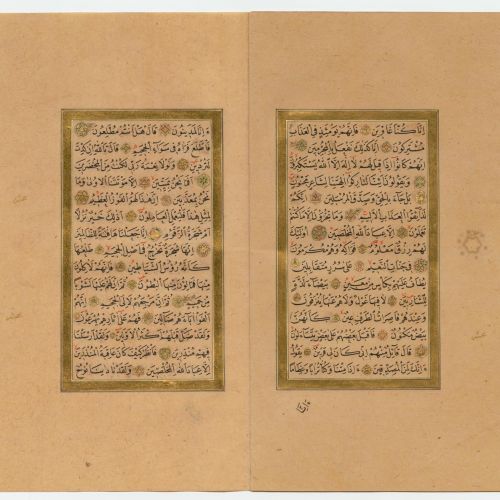 انا كنا غاوين فانهم يومئذ في العذاب
مشتركون انا كذلك نفعل بالمجرمين
انهم كانوا اذا قيل لهم لا اله الا الله يستكبرون
ويقولون ائنا لتاركوا الهتنا لشاعر مجنون
بل جاء بالحق وصدق المرسلين انكم
لذائقوا العذاب الاليم وما تجزون الا ما كنتم
تعملون الا عباد الله المخلصين اولئك
لهم رزق معلوم فواكه وهم مكرمون
في جنات النعيم على سرر متقابلين
يطاف عليهم بكأس من معين بيضاء لذة
للشاربين لا فيها غول ولا هم عنها ينزفون
وعندهم قاصرات الطرف عين كانهن
بيض مكنون فاقبل بعضهم على بعض يتساءلون
قال قائل منهم اني كان لي قرين يقول
ائنك لمن المصدقين ائذا متنا وكنا ترابا وعظاما
ائنا لمدينون قال هل انتم مطلعون
فاطلع فراه في سواء الجحيم قال تالله ان كدت
لتردين ولولا نعمة ربي لكنت من المحضرين
افما نحن بميتين الا موتتنا الاولى وما
نحن بمعذبين ان هذا لهو الفوز العظيم
لمثل هذا فليعمل العاملون اذلك خير نزلا
ام شجرة الزقوم انا جعلناها فتنة للظالمين
انها شجرة تخرج في اصل الجحيم طلعها
كانه رؤس الشياطين فانهم لاكلون
منها فمالؤن منها البطون ثم ان لهم عليها لشوبا
من حميم ثم ان مرجعهم لالى الجحيم انهم
الفوا اباءهم ضالين فهم على اثارهم يهرعون
ولقد ضل قبلهم اكثر الاولين ولقد ارسلنا
فيهم منذرين فانظر كيف كان عاقبة المنذرين
الا عباد الله المخلصين ولقد نادانا نوح